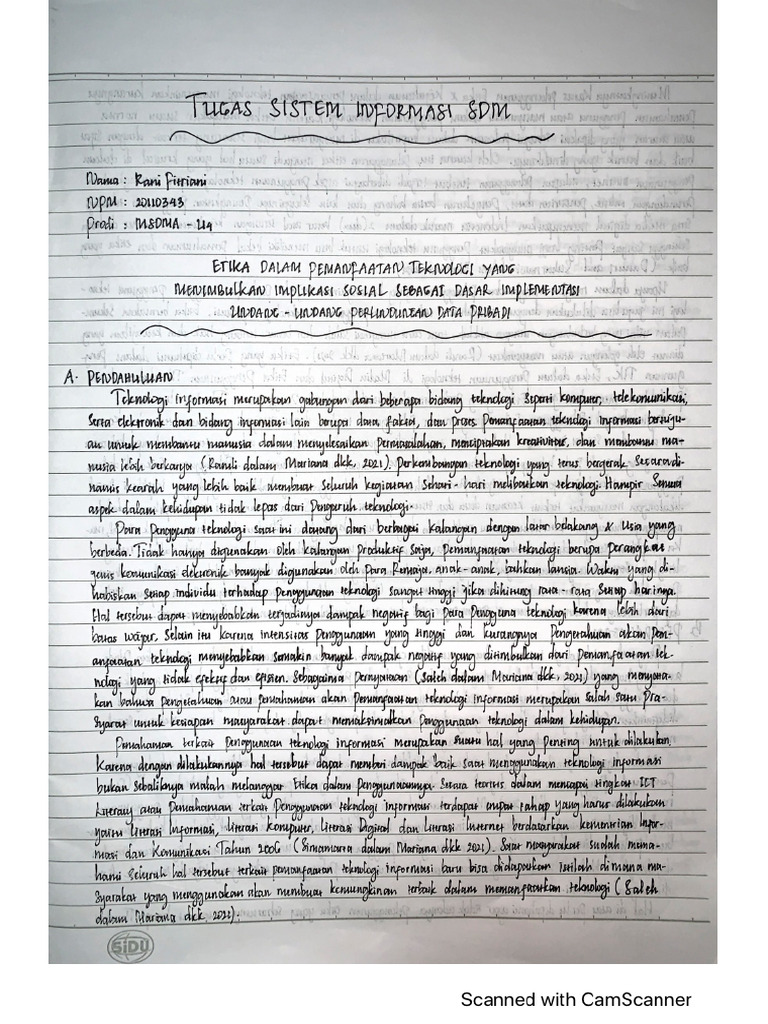 TUGAS SISTEM INFORMASI SDM
Nama : Rani Fitriani
NPM : 20110343
Prodi : MSDMA - U4
ETIKA DALAM PEMANFAATAN TEKNOLOGI YANG
MENIMBULKAN IMPLIKASI SOSIAL SEBAGAI DASAR IMPLEMENTASI
UNDANG - UNDANG PERLINDUNGAN DATA PRIBADI
A. PENDAHULUAN
Teknologi informasi merupakan gabungan dari beberapa bidang teknologi seperti komputer, telekomunikasi,
serta elektronik dan bidang informasi lain berupa data, fakta, dan proses. Pemanfaatan teknologi informasi bertuju-
an untuk membantu manusia dalam menyelesaikan permasalahan, menciptakan kreativitas, dan membantu ma-
nusia lebih berkarya (Ramli dalam Mariana dkk, 2021). Perkembangan teknologi yang terus bergerak secara di-
namis kearah yang lebih baik membuat seluruh kegiatan sehari-hari melibatkan teknologi. Hampir semua
aspek dalam kehidupan tidak lepas dari pengaruh teknologi.
Para pengguna teknologi saat ini datang dari berbagai kalangan dengan latar belakang & usia yang
berbeda. Tidak hanya digunakan oleh kalangan produktif saja, pemanfaatan teknologi berupa perangkat
jenis komunikasi elektronik banyak digunakan oleh para remaja, anak-anak, bahkan lansia. Waktu yang di-
habiskan setiap individu terhadap penggunaan teknologi sangat tinggi jika dihitung rata-rata setiap harinya.
Hal tersebut dapat menyebabkan terjadinya dampak negatif bagi para pengguna teknologi karena lebih dari
batas wajar. Selain itu karena intensitas penggunaan yang tinggi dan kurangnya pengetahuan akan pem-
anfaatan teknologi menyebabkan semakin banyak dampak negatif yang ditimbulkan dari pemanfaatan tek-
nologi yang tidak efektif dan efisien. Sebagaimana pernyataan (Saleh dalam Mariana dkk, 2021) yang menyata-
kan bahwa pengetahuan atau pemahaman akan pemanfaatan teknologi informasi merupakan salah satu pra-
syarat untuk kesiapan masyarakat dapat memaksimalkan penggunaan teknologi dalam kehidupan.
Pemahaman terkait penggunaan teknologi informasi merupakan suatu hal yang penting untuk dilakukan.
Karena dengan dilakukannya hal tersebut dapat memberi dampak baik saat menggunakan teknologi informasi
bukan sebaliknya malah melanggar etika dalam penggunaannya. Secara teoritis dalam mencapai tingkat ICT
Literacy atau pemahaman terkait penggunaan teknologi informasi terdapat empat tahap yang harus dilakukan
yaitu literasi informasi, literasi komputer, literasi digital dan literasi internet berdasarkan kementrian Infor-
masi dan Komunikasi Tahun 2006 (Simamora dalam Mariana dkk 2021). Saat masyarakat sudah mema-
hami seluruh hal tersebut terkait pemanfaatan teknologi informasi baru bisa didapatkan istilah dimana ma-
syarakat yang menggunakan akan membuat kemungkinan terbaik dalam memanfaatkan teknologi (Saleh
dalam Mariana dkk, 2021).
SIDU
Scanned with CamScanner